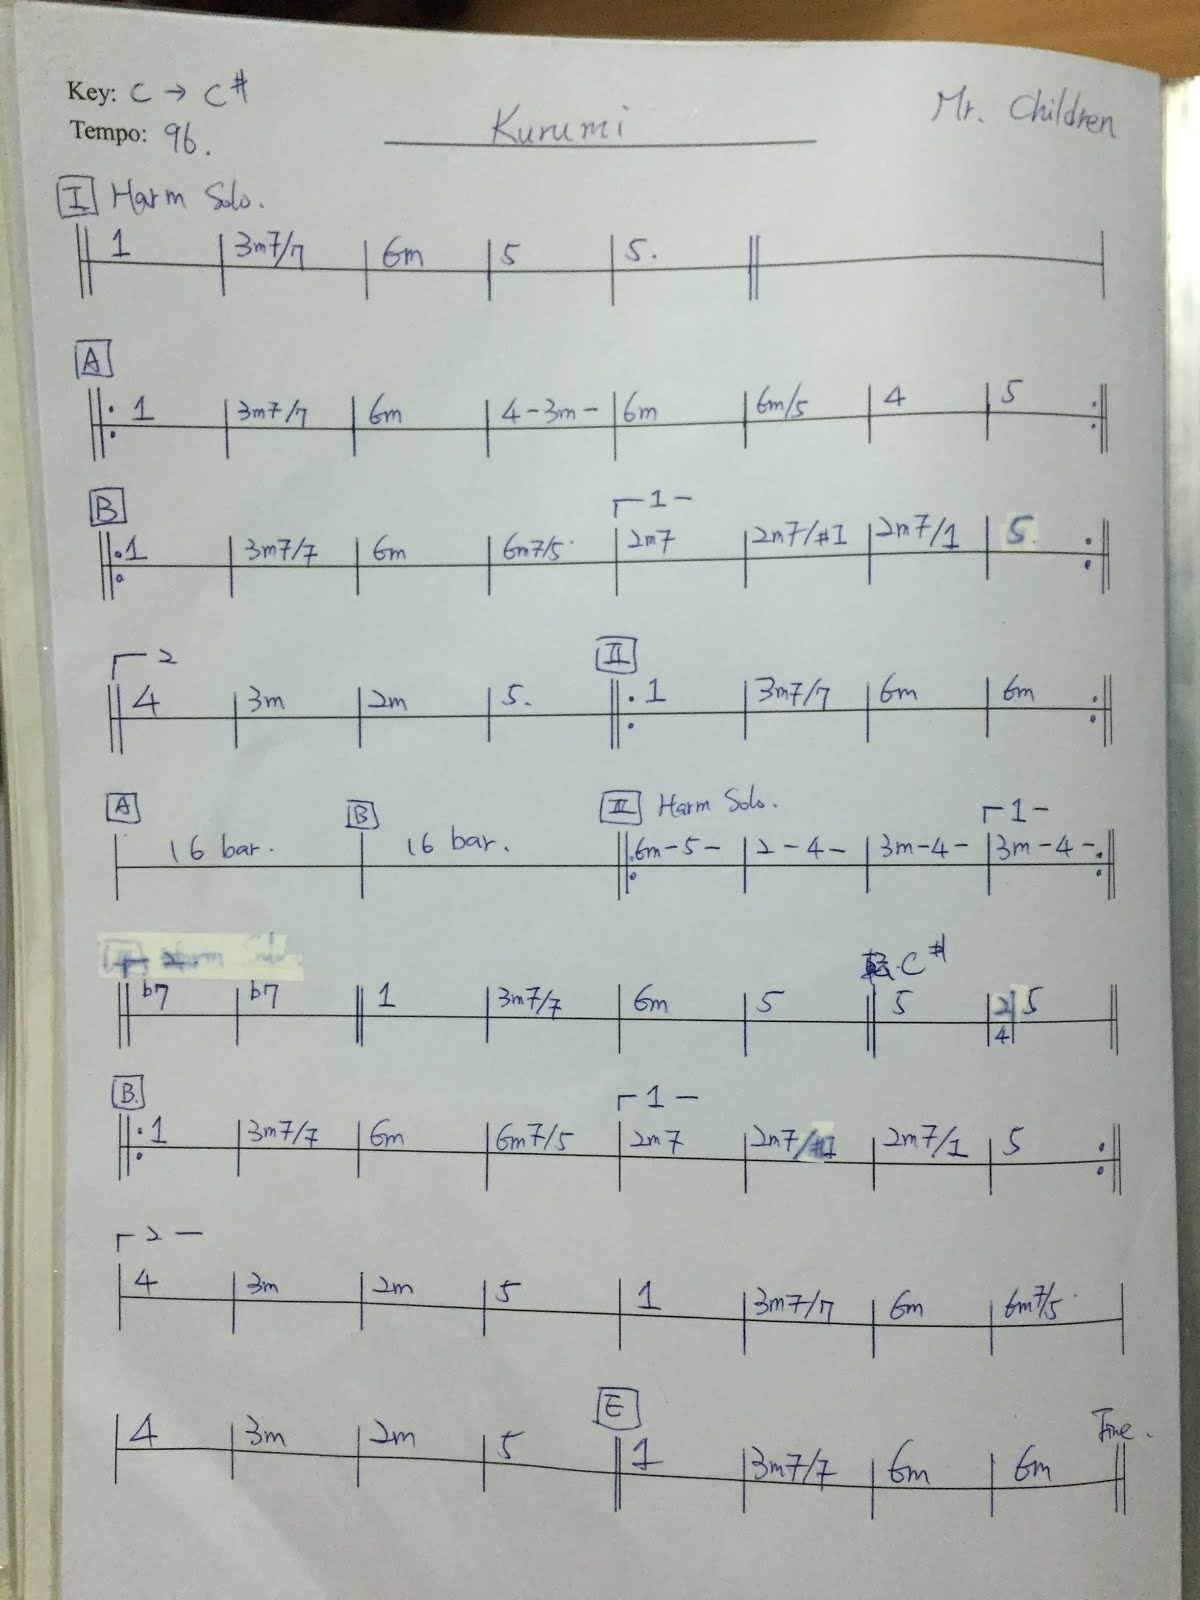 Key: C → C#
Kurumi
Mr. Children
Tempo: 96.
I Harm Solo.
1 3m7/7 6m 5 5.
A
1 3m7/7 6m 4-3m- 6m 6m/5 4 5
B
1-
1 3m7/7 6m 6m7/5 2m7 2m7/#1 2m7/1 5
2
II
4 3m 2m 5. 1 3m7/7 6m 6m
A B III Harm Solo. 1-
16 bar. 16 bar. 6m-5- 2-4- 3m-4- 3m-4-
転 C#
b7 b7 1 3m7/7 6m 5 5 2/4 5
B. 1-
1 3m7/7 6m 6m7/5 2m7 2m7/#1 2m7/1 5
2-
4 3m 2m 5 1 3m7/7 6m 6m7/5
E
Fine.
4 3m 2m 5 1 3m7/7 6m 6m